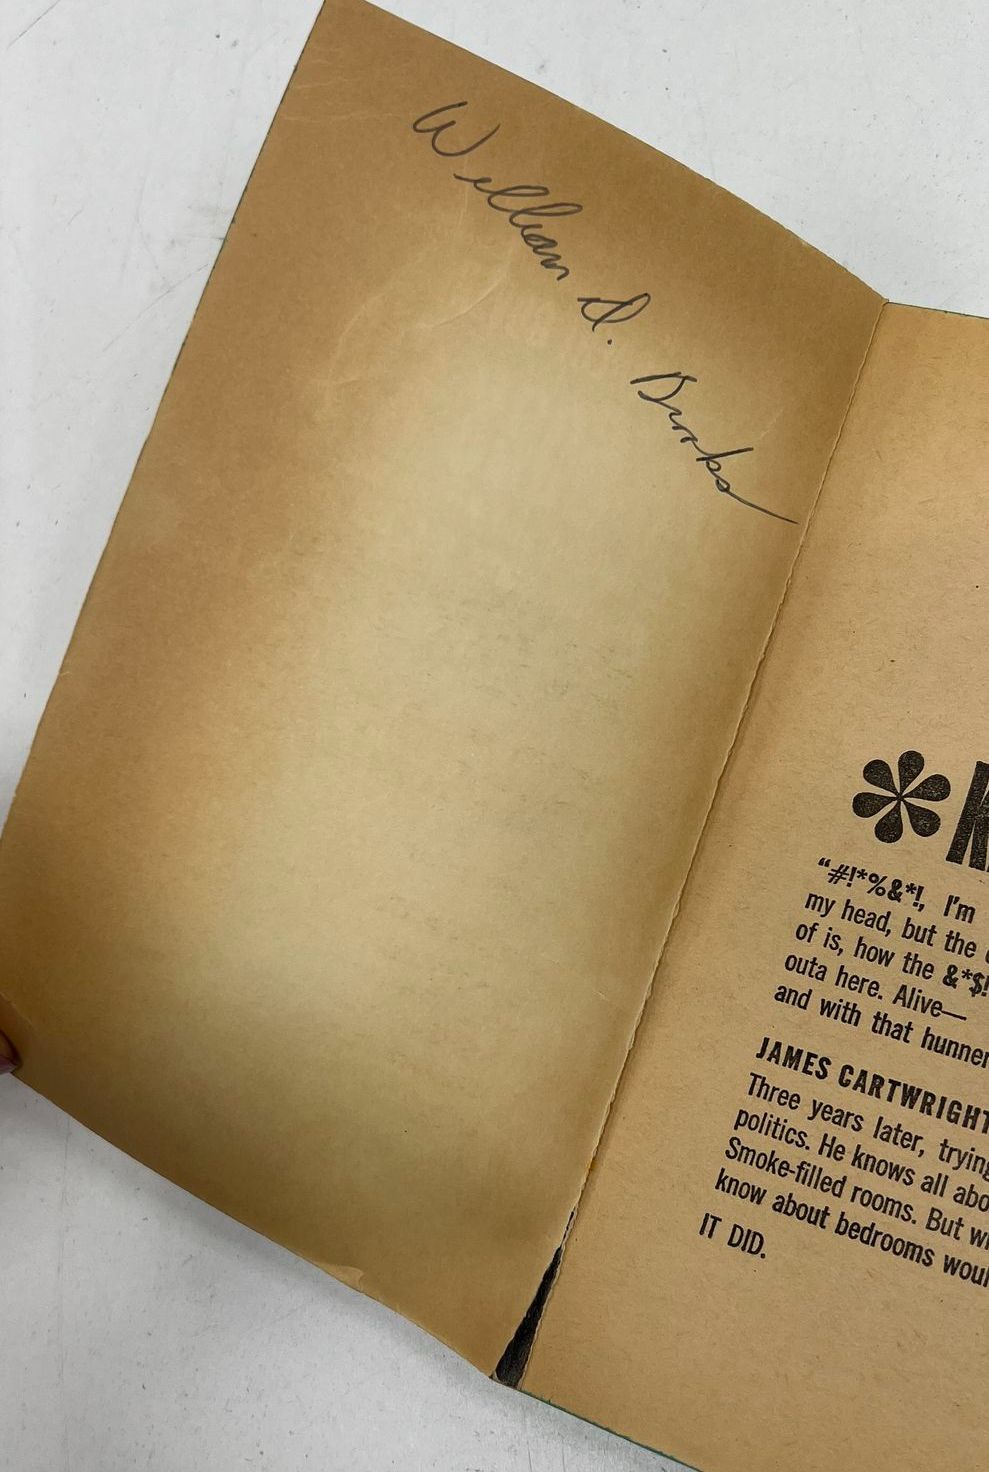 William D. Brooks
*K
"#!*%&*!, I'm
my head, but the
of is, how the &*$!
outa here. Alive—
and with that hunner
JAMES CARTWRIGHT
Three years later, trying
politics. He knows all abo
Smoke-filled rooms. But
know about bedrooms woul
IT DID.